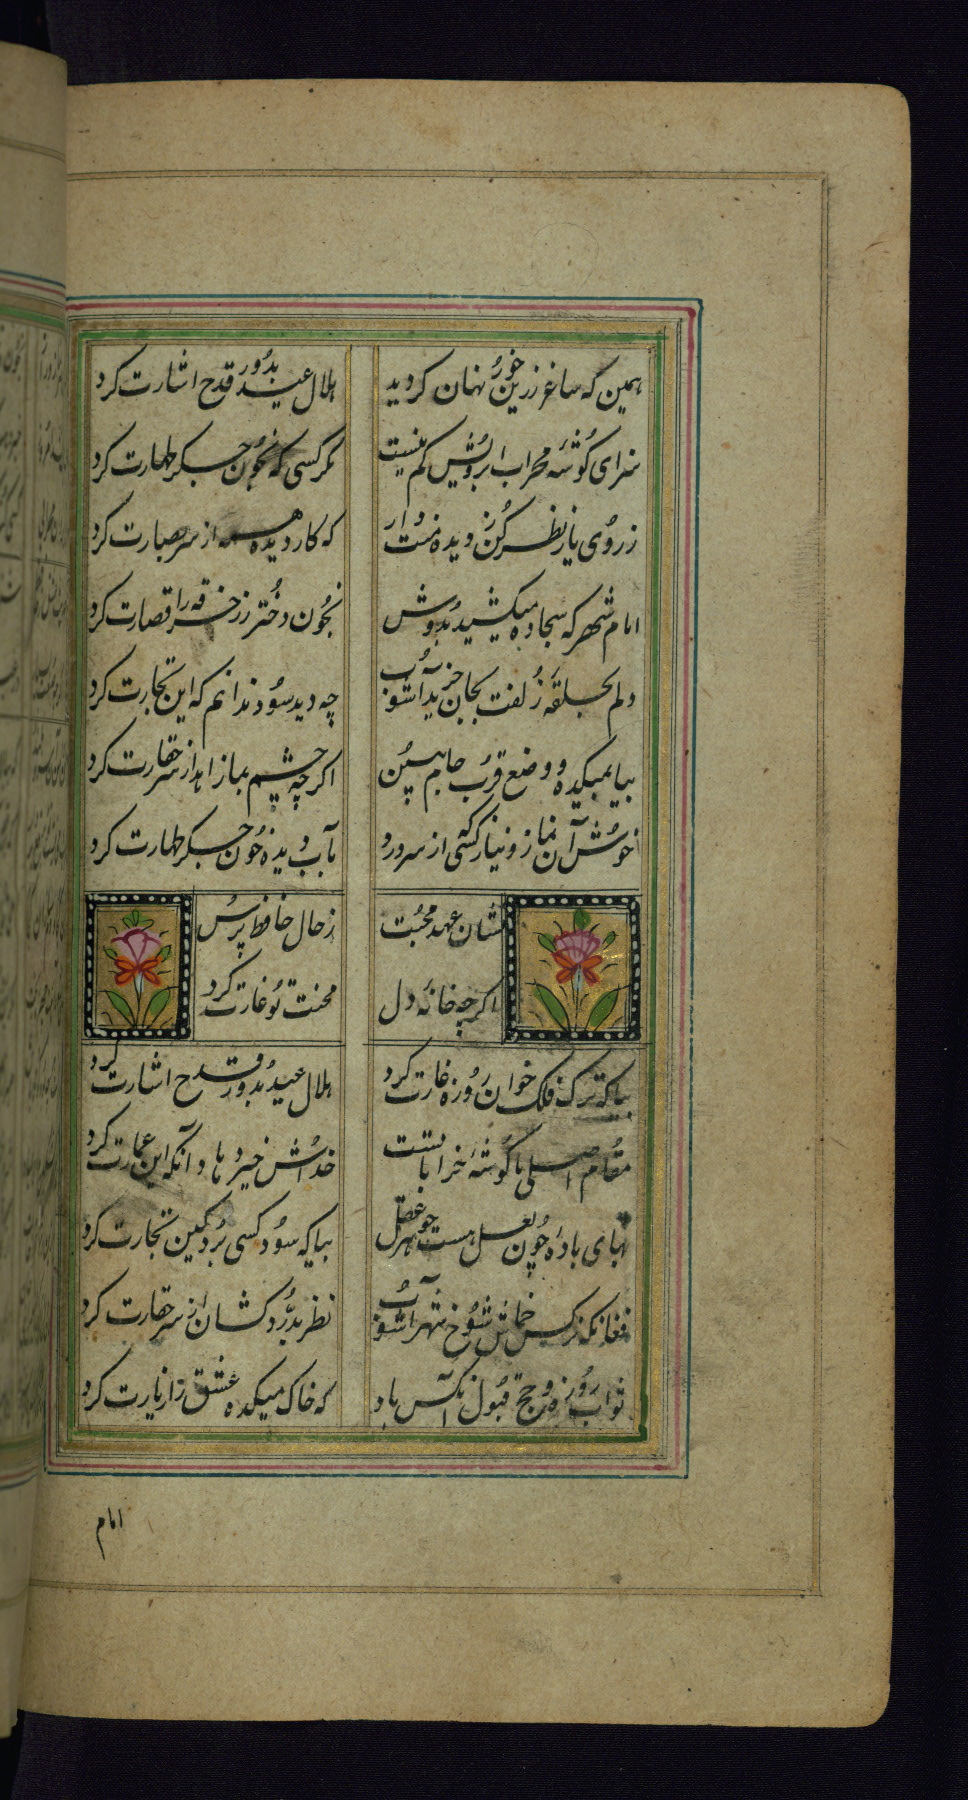 همین که ساغر زرین خور نهان کردید
هلال عید بدور قدح اشارت کرد
سزای گوشهٔ محراب ابرویش کم نیست
مکر کسی که بخون جکر طهارت کرد
ز روی یار نظر کن ز دیده منت دار
که کار دیده همه از سر بصارت کرد
امام شهر که سجاده میکشید بدوش
بخون دختر رز خرقه را قصارت کرد
دلم بحلقهٔ زلفت بجان خرید آشوب
چه دید سود ندانم که این تجارت کرد
بیا بمیکده و وضع قرب جاهم بین
اکر چه چشم بما زاهد از سر حقارت کرد
خوش آن نماز و نیاز کسی که از سر درد
بآب دیده و خون جکر طهارت کرد
نشان عهد محبت
ز حال حافظ پرس
اکر چه خانهٔ دل
محنت تو غارت کرد
بیا که ترک فلک خوان روزه غارت کرد
هلال عید بدور قدح اشارت کرد
مقام اصلی ما کوشهٔ خراباتست
خداش خیر دهاد آنکه این عمارت کرد
بهای باده چون لعل هست جوهر عقل
بیا که سود کسی برد کین تجارت کرد
فغان که نرکس جماش شوخ شهرآشوب
نظر بدرد کشان از سر حقارت کرد
ثواب روزه و حج قبول آنکس باد
که خاک میکده عشق را زیارت کرد
امام